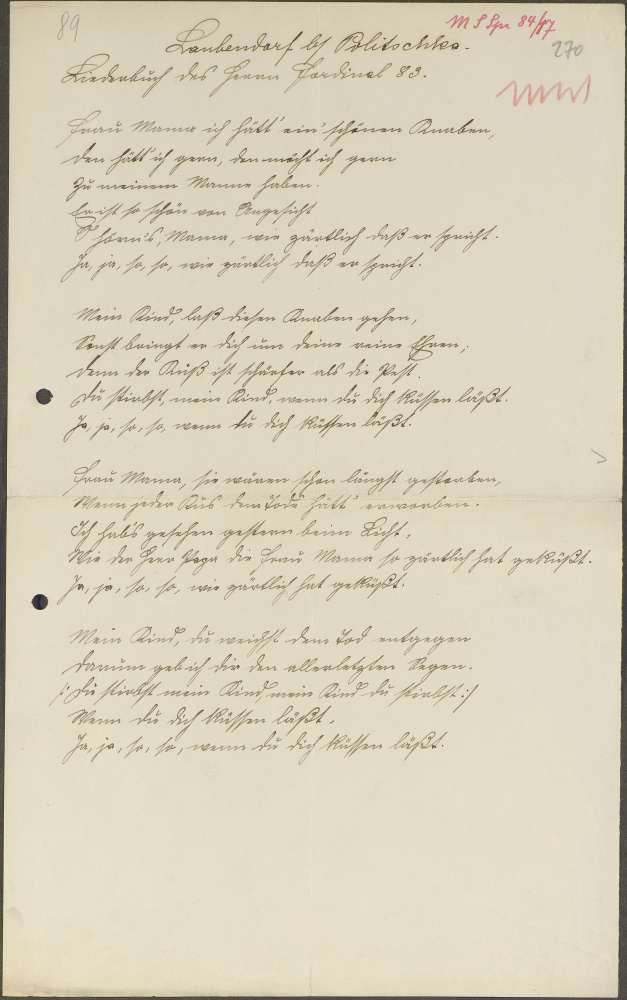 89
M S Spr 84/87
270
Laubendorf b/ Politschka.
Liederbuch des Herrn Ferdinal 83.
Frau Mama ich hätt' ein' schönen Knaben,
den hätt' ich gern, den möcht ich gern
Zu meinem Manne haben.
Er ist so schön von Angesicht
O hören's, Mama, wie zärtlich daß er spricht.
Ja, ja, so, so, wie zärtlich daß er spricht.
Mein Kind, laß diesen Knaben gehen,
Sonst bringt er dich um deine reine Ehren;
denn der Kuß ist schärfer als die Pest.
Du stirbst, mein Kind, wenn du dich küssen läßt.
Ja, ja, so, so, wenn du dich küssen läßt.
Frau Mama, sie wären schon längst gestorben,
Wenn jeder Kus dem Tode hätt' erworben.
Ich hab's gesehen gestern beim Licht,
Wie der Herr Papa die Frau Mama so zärtlich hat geküßt.
Ja, ja, so, so, wie zärtlich hat geküßt.
Mein Kind, du weichst dem Tod entgegen
darum geb ich dir den allerletzten Segen.
/: Du stirbst mein Kind, mein Kind du stirbst :/
Wenn du dich küssen läßt.
Ja, ja, so, so, wenn du dich küssen läßt.